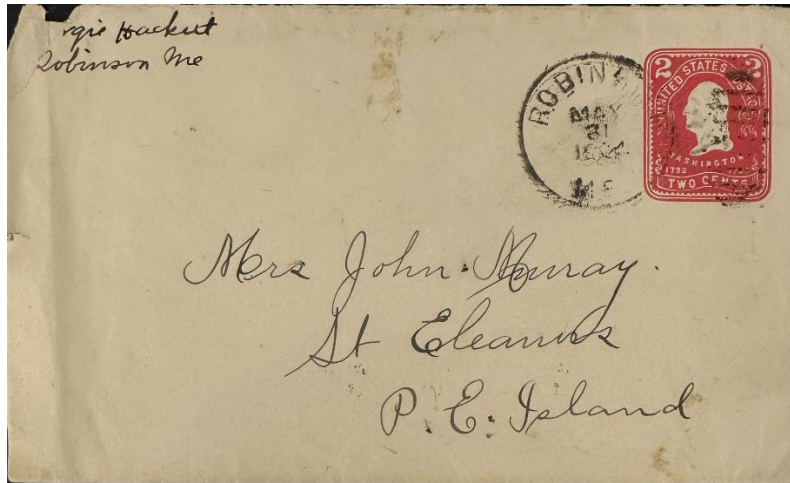 Hackett
Robinson Me
ROBIN
MAY
31
ME
2 2
UNITED STATES
WASHINGTON
1732
TWO CENTS
Mrs John Murray.
St Eleanors
P. E. Island